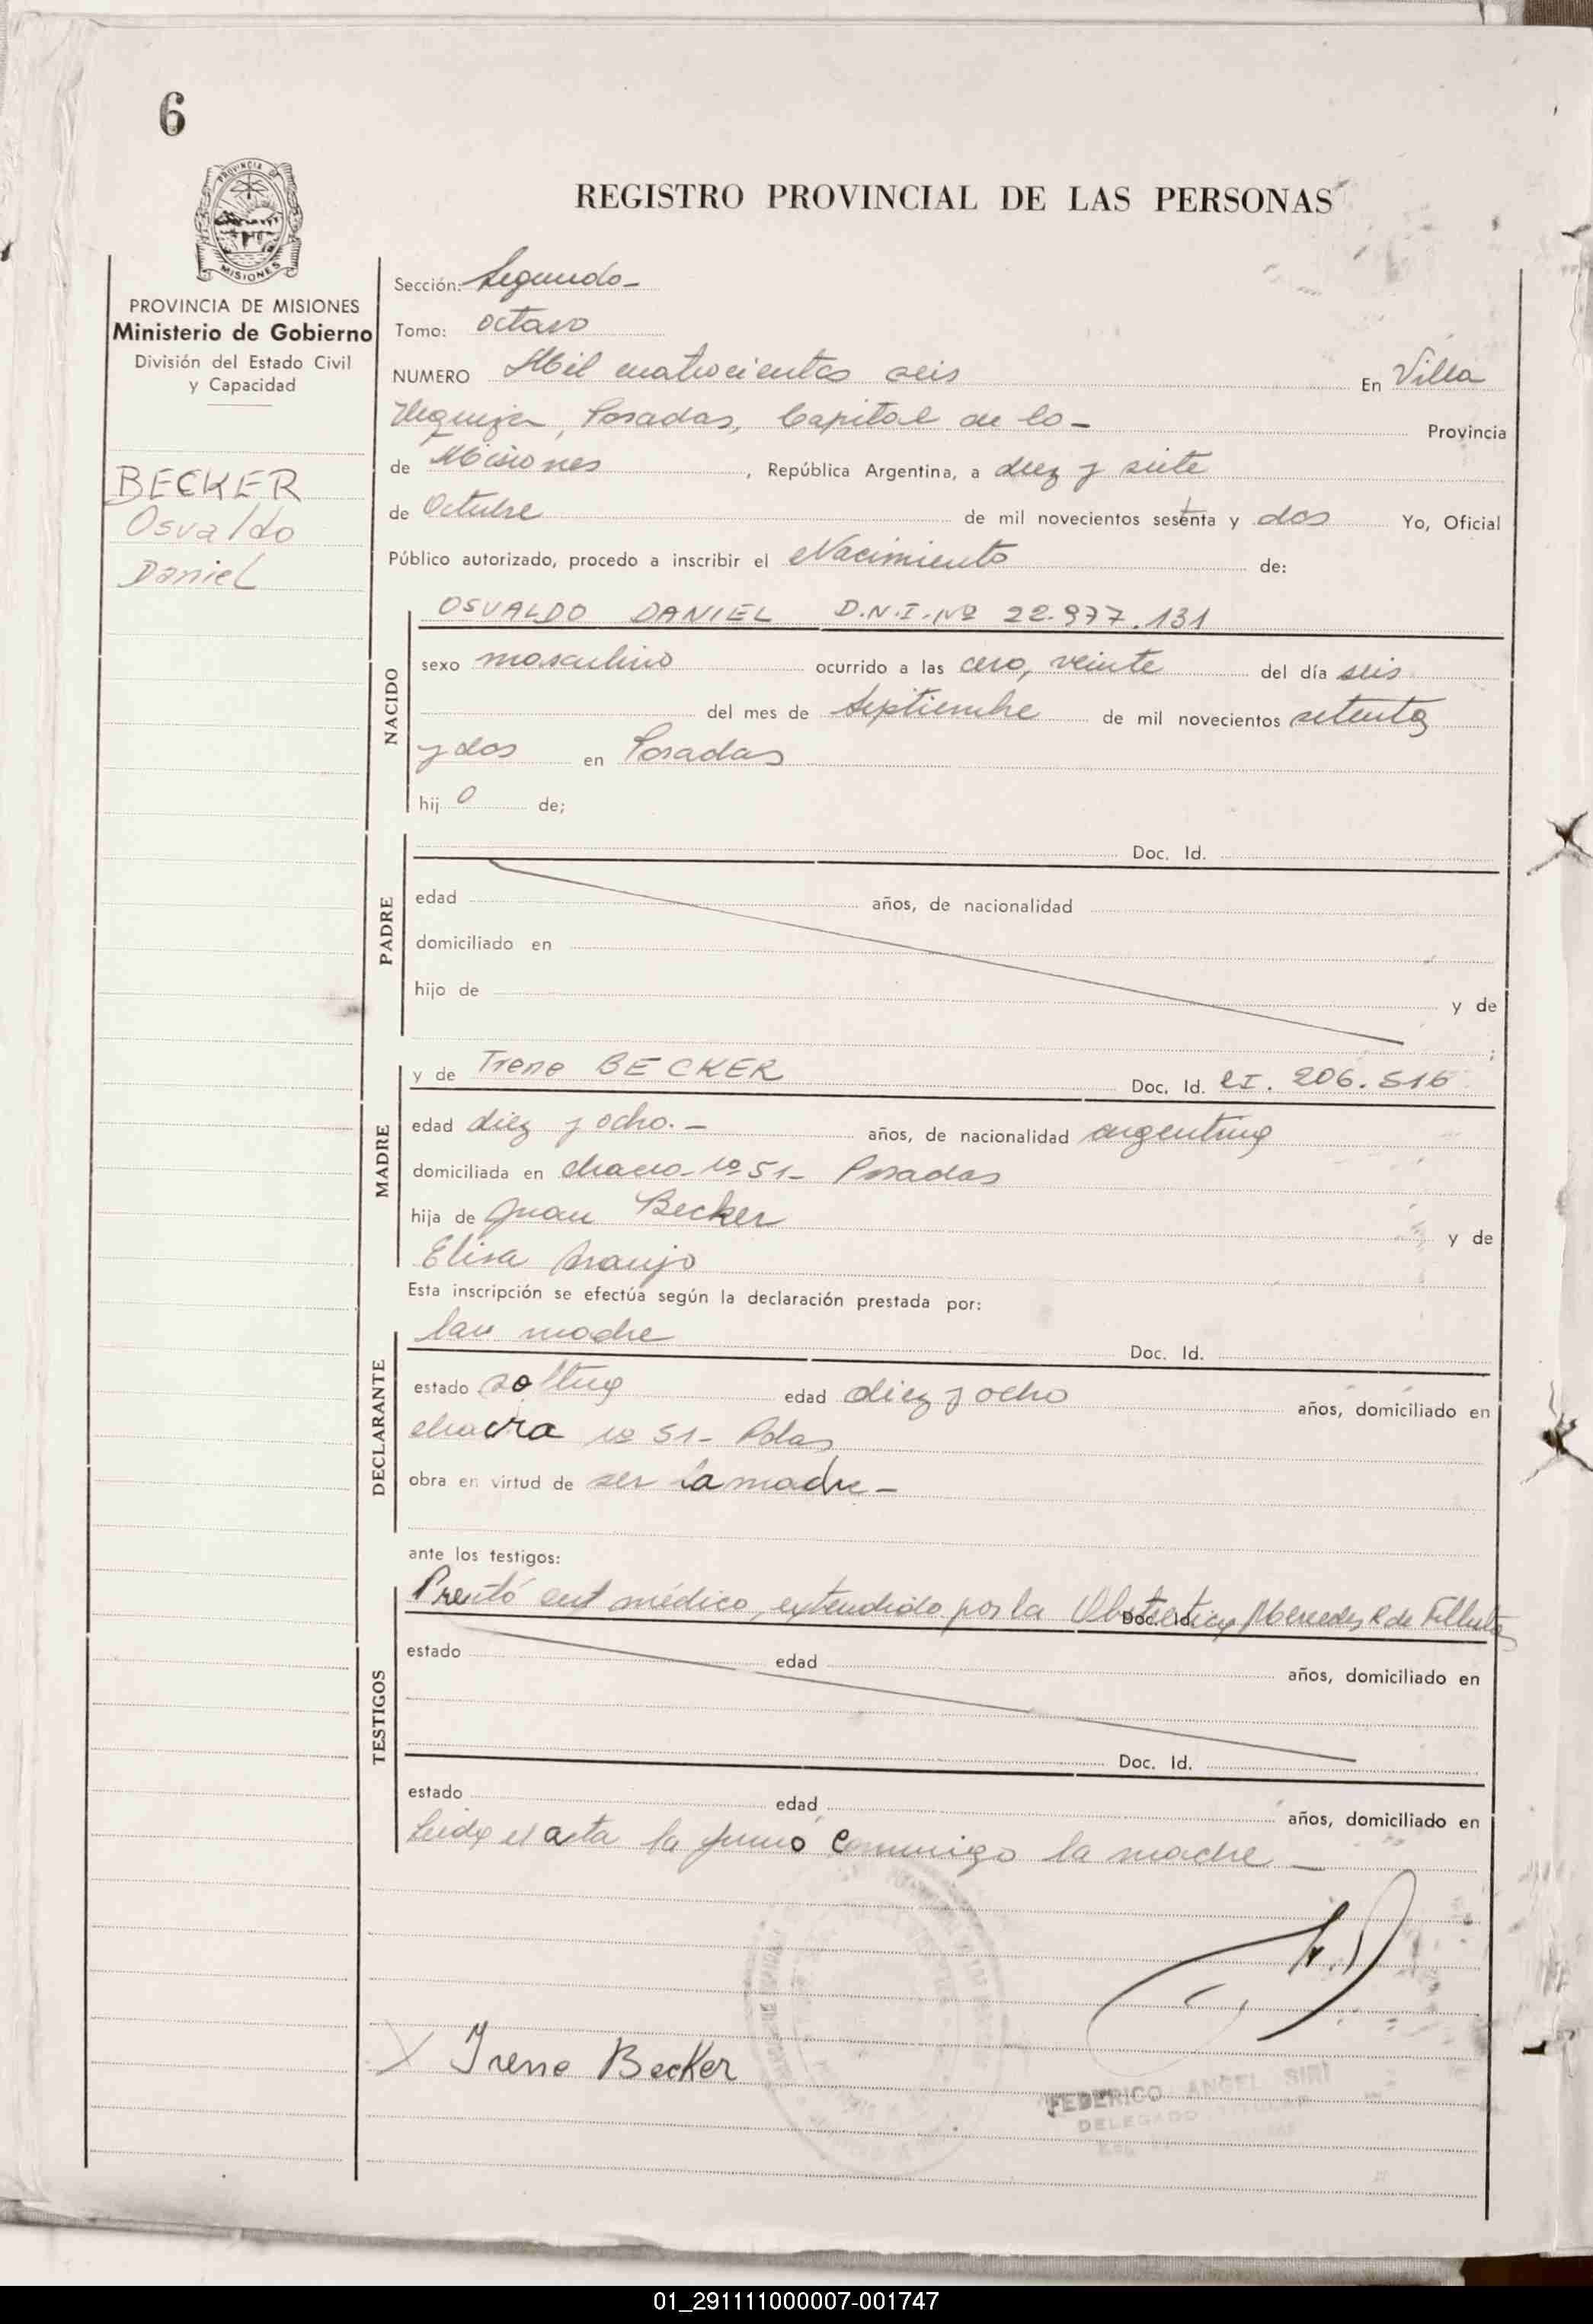 6
PROVINCIA DE
MISIONES
REGISTRO PROVINCIAL DE LAS PERSONAS
PROVINCIA DE MISIONES
Ministerio de Gobierno
División del Estado Civil
y Capacidad
BECKER
Osvaldo
Daniel
Sección: Segundo-
Tomo: octavo
NUMERO Mil cuatrocientos seis En Villa
Urquiza, Posadas, Capital de la - Provincia
de Misiones, República Argentina, a diez y siete
de Octubre de mil novecientos sesenta y dos Yo, Oficial
Público autorizado, procedo a inscribir el Nacimiento de:
NACIDO
OSVALDO DANIEL D.N.I. Nº 22.977.131
sexo masculino ocurrido a las cero, veinte del día seis
del mes de Septiembre de mil novecientos setenta
y dos en Posadas
hij o de;
PADRE
Doc. Id.
edad años, de nacionalidad
domiciliado en
hijo de y de
;
MADRE
y de Irene BECKER Doc. Id. CI. 206.516
edad diez y ocho.- años, de nacionalidad argentina
domiciliada en chacra nº 51- Posadas
hija de Juan Becker y de
Elisa Araujo
Esta inscripción se efectúa según la declaración prestada por:
DECLARANTE
la madre Doc. Id.
estado soltera edad diez y ocho años, domiciliado en
chacra nº 51- Pdas
obra en virtud de ser la madre-
ante los testigos:
TESTIGOS
cert médico, extendido por la Obstetrica Mercedes R de Doc. Id.
estado edad años, domiciliado en
Doc. Id.
estado edad años, domiciliado en
Leida el acta la firmó conmigo la madre
X Irene Becker
FEDERICO ANGEL SIRI
DELEGADO TITULAR
01_291111000007-001747